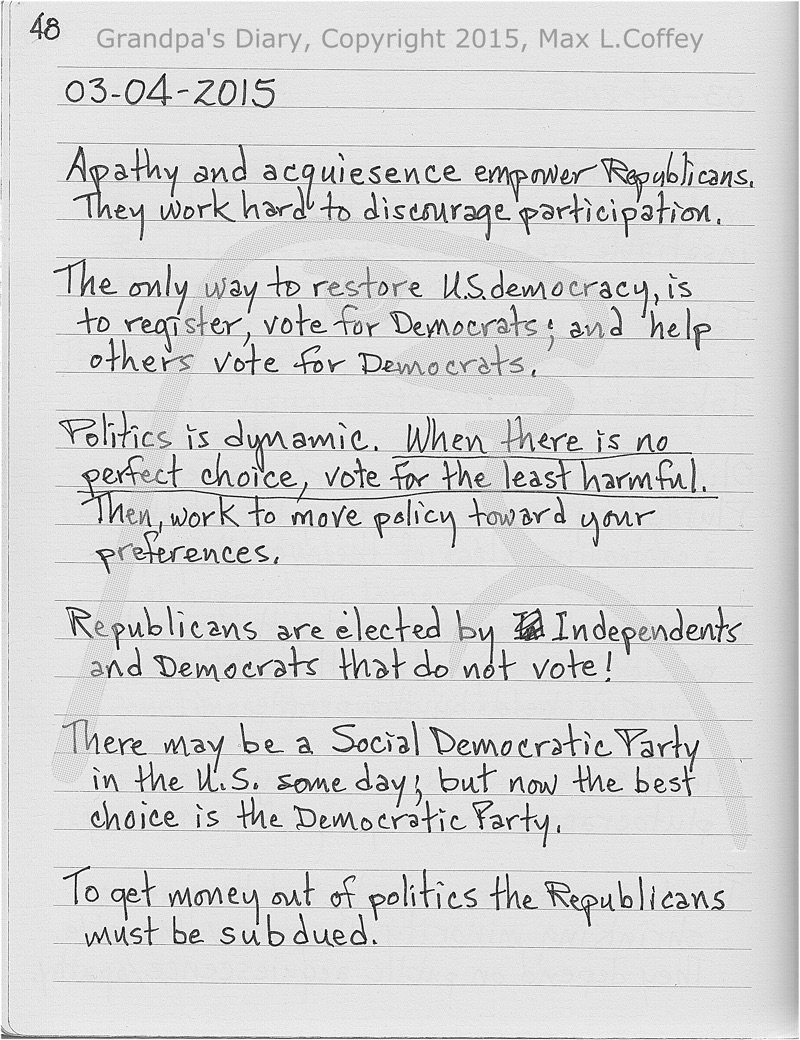 48
Grandpa's Diary, Copyright 2015, Max L.Coffey
03-04-2015
Apathy and acquiesence empower Republicans.
They work hard to discourage participation.
The only way to restore U.S. democracy, is
to register, vote for Democrats; and help
others vote for Democrats.
Politics is dynamic. When there is no
perfect choice, vote for the least harmful.
Then, work to move policy toward your
preferences.
Republicans are elected by Independents
and Democrats that do not vote!
There may be a Social Democratic Party
in the U.S. some day; but now the best
choice is the Democratic Party.
To get money out of politics the Republicans
must be subdued.